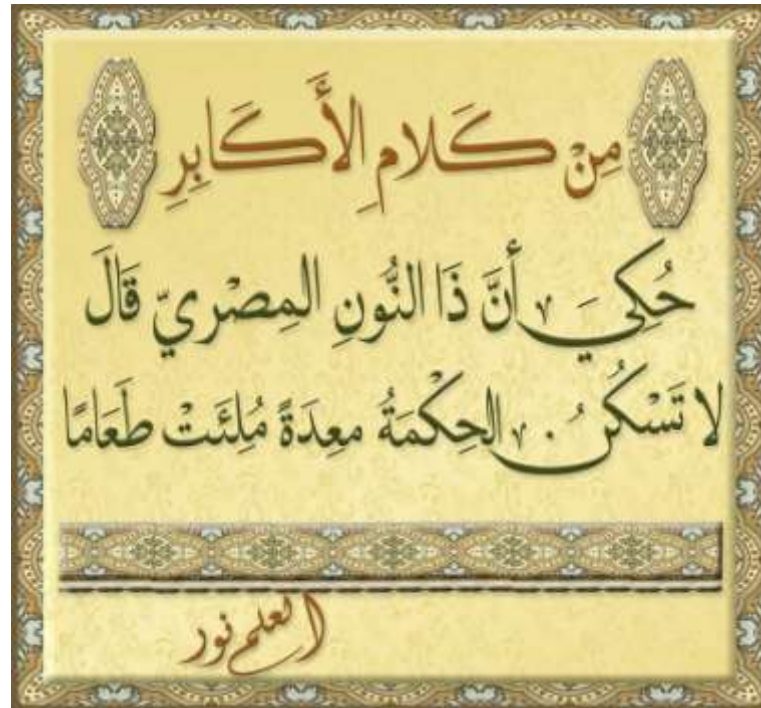 مِنْ كَلامِ الأَكَابِرِ
حُكِيَ أَنَّ ذَا النُّونِ المِصْريّ قَالَ
لا تَسْكُنُ الحِكْمَةُ معِدَةً مُلِئَتْ طَعَامًا
العلم نور